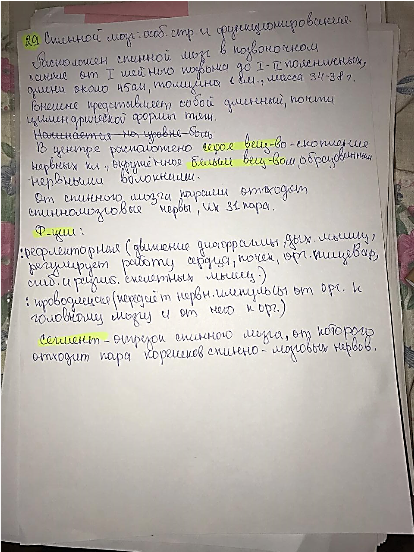 29 Спинной мозг: особ. стр и функционирование.
Расположен спинной мозг в позвоночном
канале от I шейного позвонка до I-II поясничных,
длина около 45см, толщина 1см, масса 34-38г.
Внешне представляет собой длинный, почти
цилиндрической формы тяж.
Начинается на уровне
В центре расположено серое вещ-во - скопление
нервных кл, окружённое белым вещ-вом, образованным
нервными волокнами.
От спинного мозга парами отходят
спинномозговые нервы, их 31 пара.
Ф-ции:
: рефлекторная (движение диафрагмы, дых. мышц,
регулирует работу сердца, почек, орг. пищевар,
сгиб. и разгиб. скелетных мышц.)
: проводящие (передаёт нервн. импульсы от орг. к
головному мозгу и от него к орг.)
Сегмент - отрезок спинного мозга, от которого
отходит пара корешков спинно-мозговых нервов.